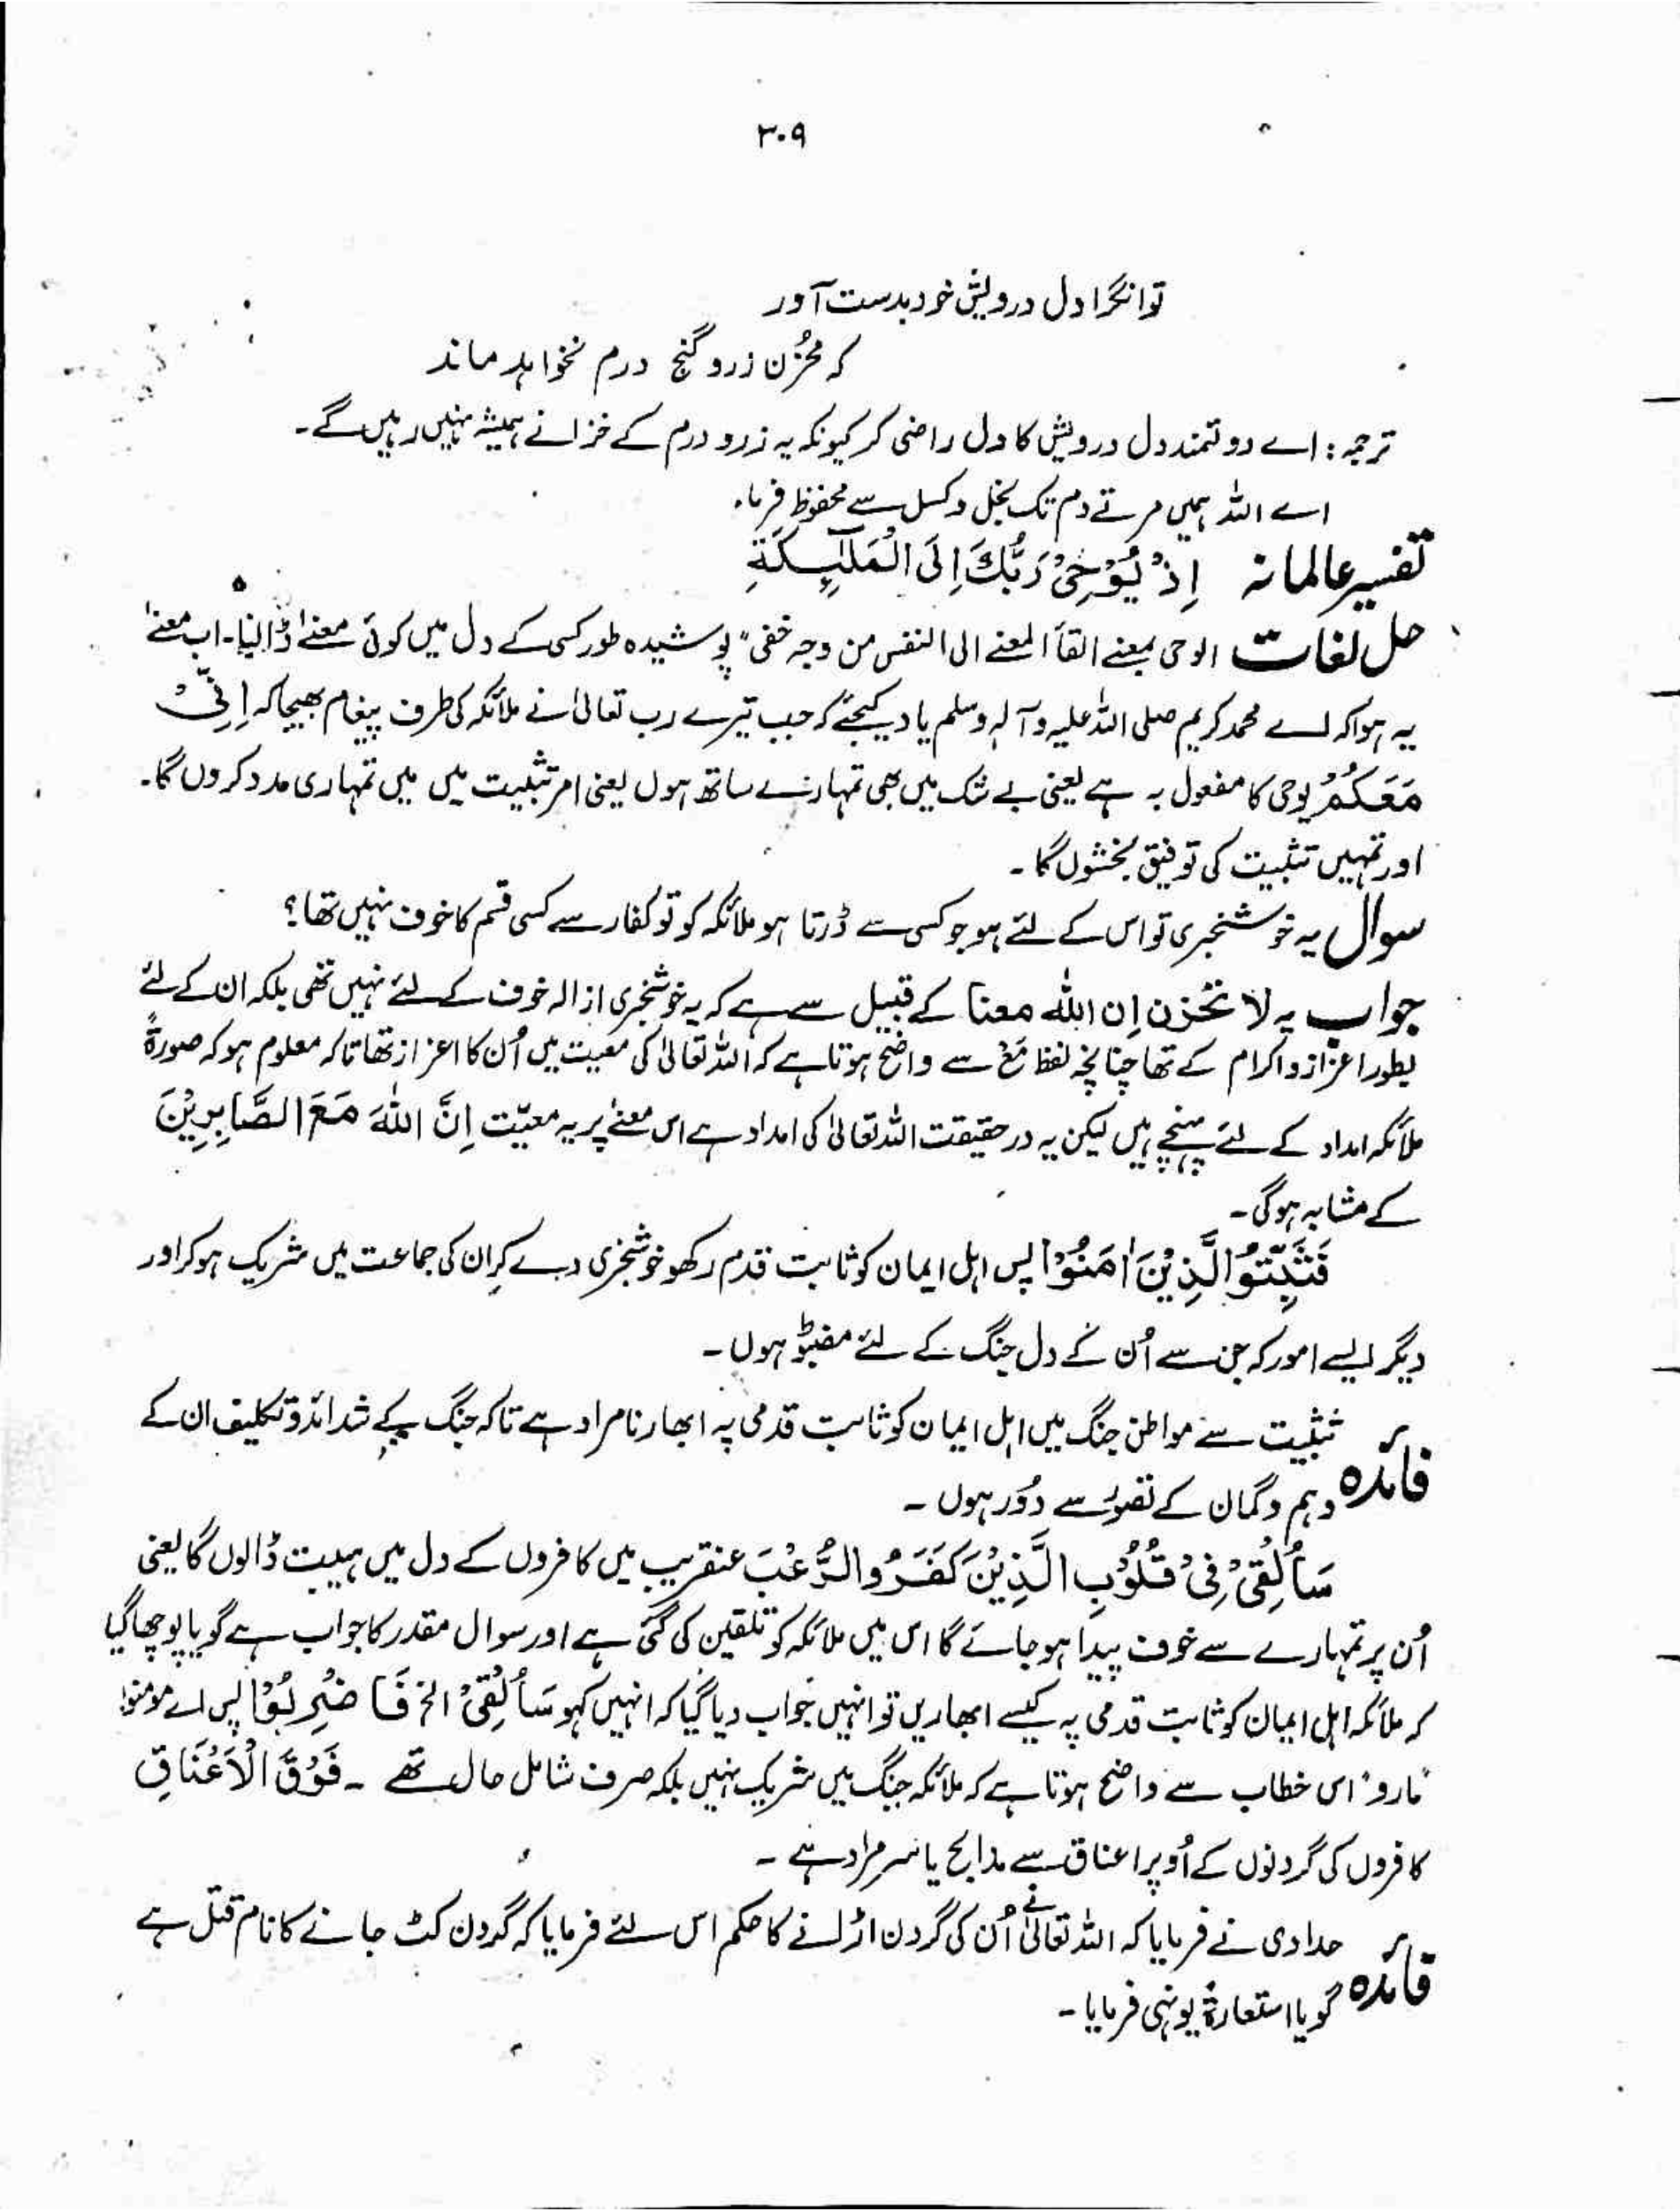 ۳۰۹
توانگرا دل درویش خود بدست آور
کہ مخزن زر و گنج درم نخواہد ماند
ترجمہ: اے دولتمند دل درویش کا دل راضی کر کیونکہ یہ زر و درم کے خزانے ہمیشہ نہیں رہیں گے۔
اے اللہ ہمیں مرتے دم تک بخل و کسل سے محفوظ فرما۔
تفسیر عالمانہ اِذْ یُوْحِیْ رَبُّكَ اِلَی الْمَلٰٓىِٕكَةِ
حل لغات الوحی بمعنے القأ المعنے الی النفس من وجہ خفی" پوشیدہ طور کسی کے دل میں کوئی معنےٰ ڈالنا۔ اب معنےٰ
یہ ہوا کہ اے محمد کریم صلی اللہ علیہ وآلہٖ وسلم یاد کیجئے کہ جب تیرے رب تعالیٰ نے ملائکہ کی طرف پیغام بھیجا کہ اِنِّیْ
مَعَكُمْ یوحی کا مفعول بہ ہے یعنی بے شک میں بھی تمہارے ساتھ ہوں یعنی امر تثبیت میں میں تمہاری مدد کروں گا۔
اور تمہیں تثبیت کی توفیق بخشوں گا۔
سوال یہ خوشخبری تو اس کے لئے ہو جو کسی سے ڈرتا ہو ملائکہ کو تو کفار سے کسی قسم کا خوف نہیں تھا؟
جواب یہ لا تحزن اِن اللّٰه معنا کے قبیل سے ہے کہ یہ خوشخبری ازالہ خوف کے لئے نہیں تھی بلکہ ان کے لئے
بطور اعزاز و اکرام کے تھا چنانچہ لفظ مَعَ سے واضح ہوتا ہے کہ اللہ تعالیٰ کی معیت میں اُن کا اعزاز تھا تاکہ معلوم ہو کہ صورۃً
ملائکہ امداد کے لئے پہنچے ہیں لیکن یہ درحقیقت اللہ تعالیٰ کی امداد ہے اس معنےٰ پر یہ معیّت اِنَّ اللّٰهَ مَعَ الصَّابِرِیْنَ
کے مشابہ ہوگی۔
فَثَبِّتُوا الَّذِیْنَ اٰمَنُوْا پس اہل ایمان کو ثابت قدم رکھو خوشخبری دے کر ان کی جماعت میں شریک ہو کر اور
دیگر ایسے امور کہ جن سے اُن کے دل جنگ کے لئے مضبوط ہوں۔
تثبیت سے مواطن جنگ میں اہل ایمان کو ثابت قدمی پہ ابھارنا مراد ہے تاکہ جنگ کے شدائد و تکلیف ان کے
فائدہ وہم و گمان کے تصوّر سے دُور ہوں۔
سَاُلْقِیْ فِیْ قُلُوْبِ الَّذِیْنَ كَفَرُوا الرُّعْبَ عنقریب میں کافروں کے دل میں ہیبت ڈالوں گا یعنی
اُن پر تمہارے سے خوف پیدا ہو جائے گا اس میں ملائکہ کو تلقین کی گئی ہے اور سوال مقدر کا جواب ہے گویا پوچھا گیا
کہ ملائکہ اہل ایمان کو ثابت قدمی پہ کیسے ابھاریں تو انہیں جواب دیا گیا کہ انہیں کہو سَاُلْقِیْ الخ فَاضْرِبُوْا پس اے مومنو!
مارو" اس خطاب سے واضح ہوتا ہے کہ ملائکہ جنگ میں شریک نہیں بلکہ صرف شامل حال تھے ۔ فَوْقَ الْاَعْنَاقِ
کافروں کی گردنوں کے اُوپر اعناق سے مذابح یا سر مراد ہے ۔
حدادی نے فرمایا کہ اللہ تعالیٰ نے اُن کی گردن اڑانے کا حکم اس لئے فرمایا کہ گردن کٹ جانے کا نام قتل ہے
فائدہ گویا استعارۃً یونہی فرمایا۔